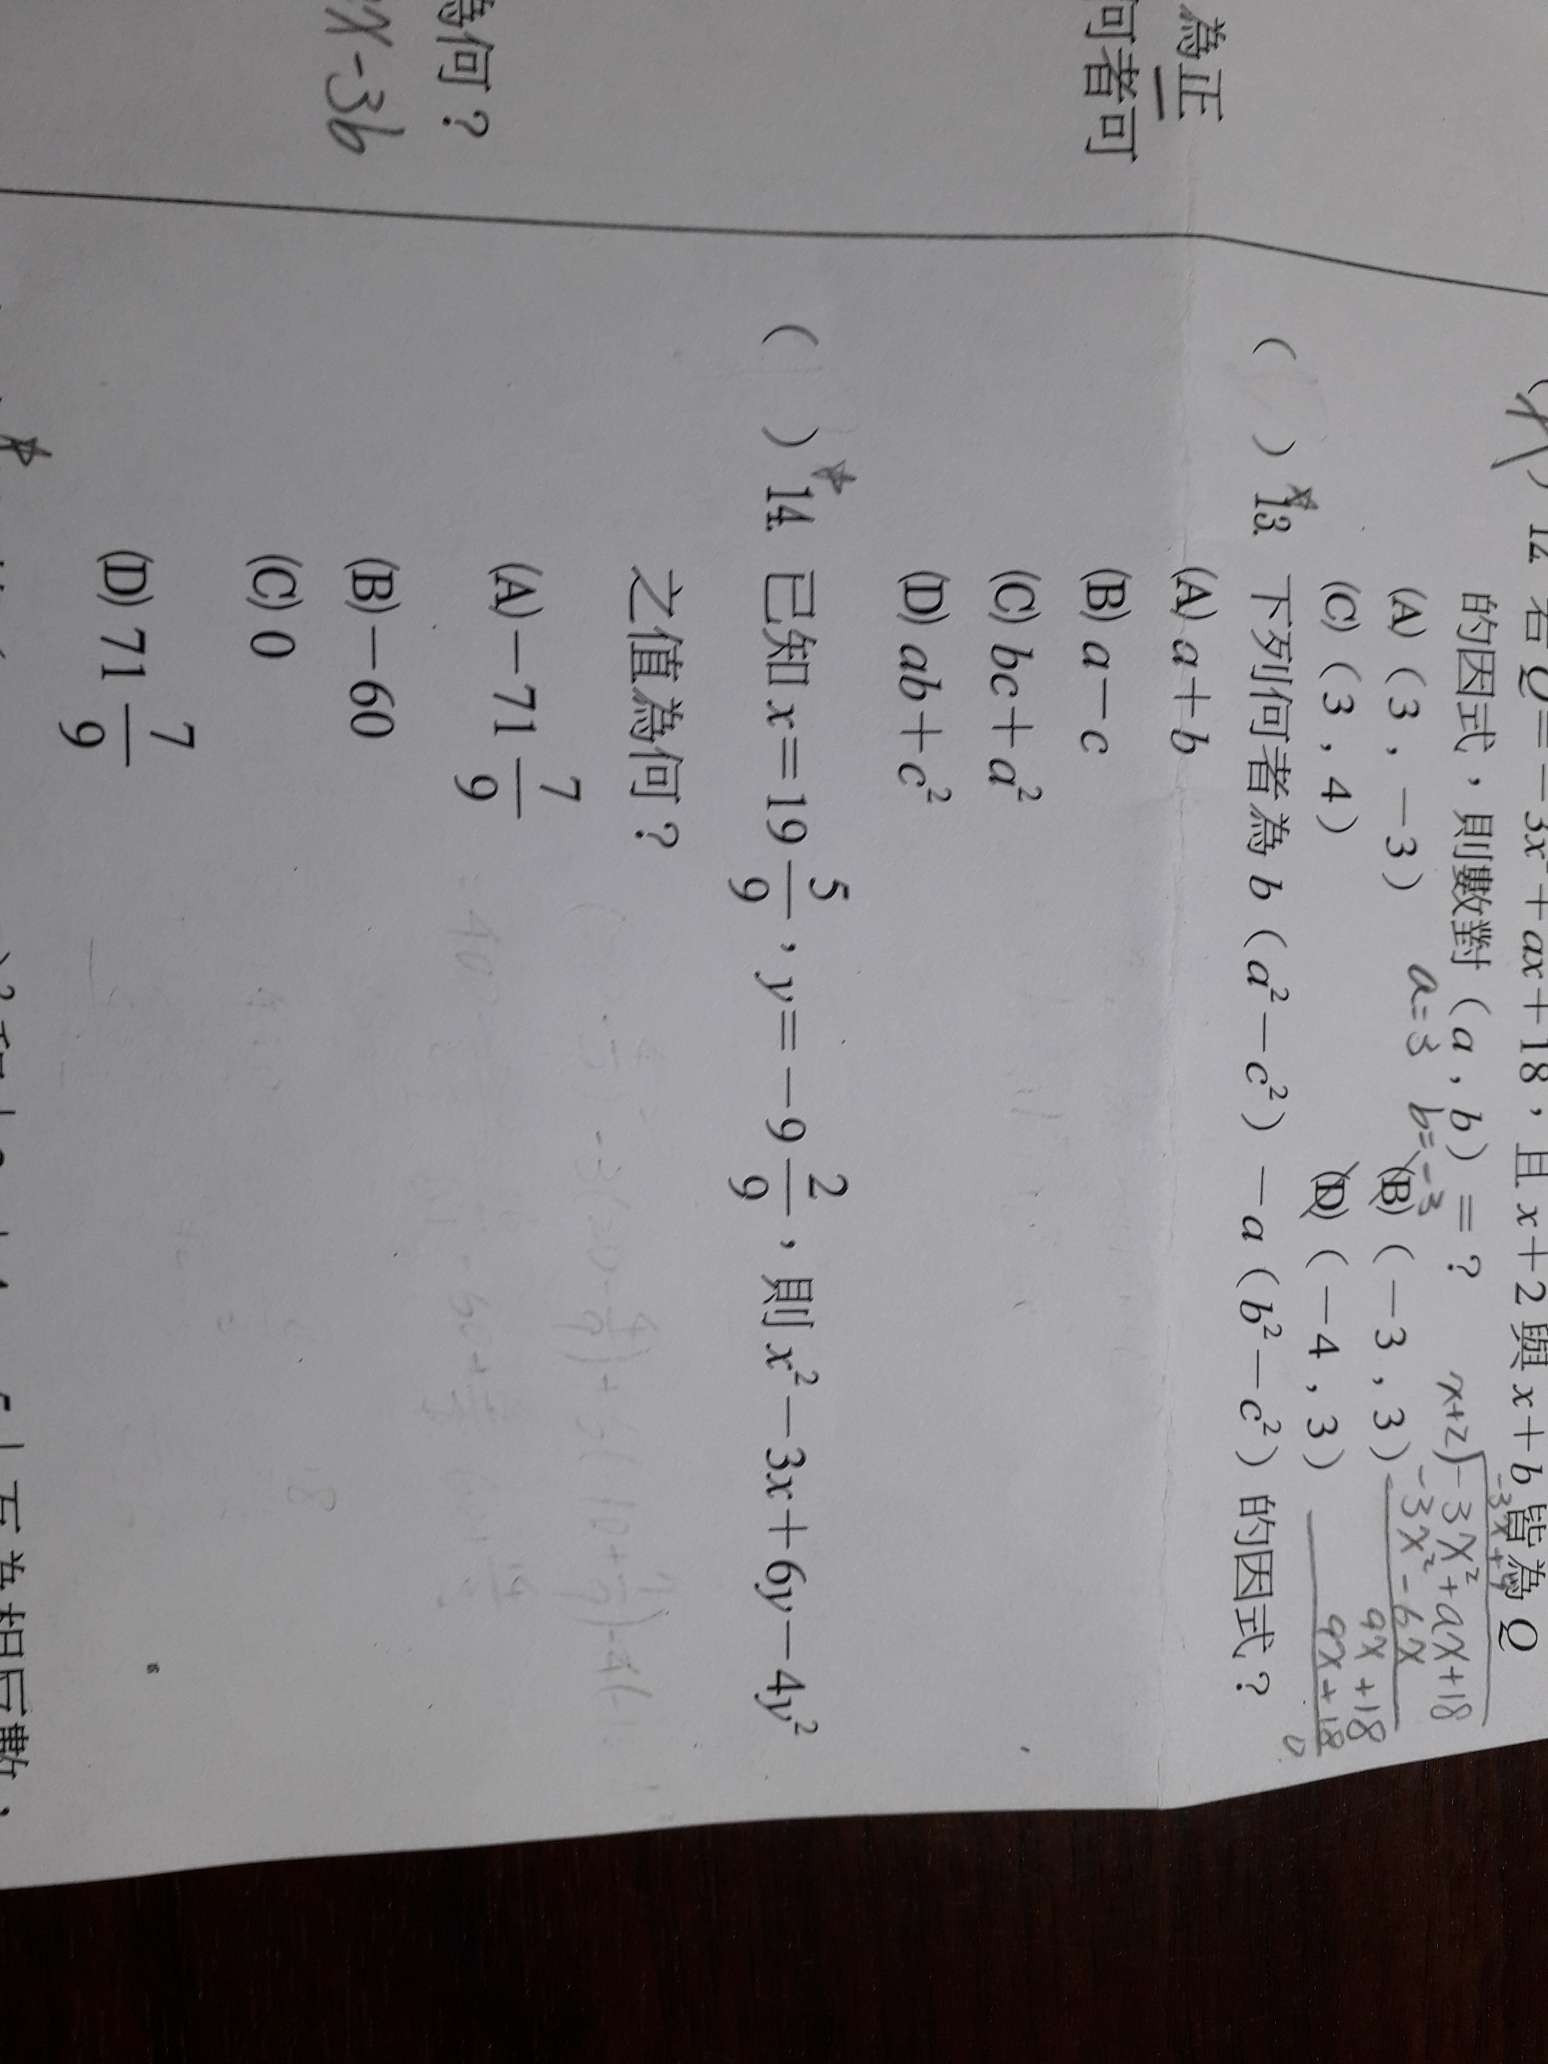 為正
何者可
為何？
x-3b
12. 若 Q＝－3x²＋ax＋18，且 x＋2 與 x＋b 皆為 Q
的因式，則數對（a , b）＝？
(A)（3 , －3） (B)（－3 , 3）
(C)（3 , 4） (D)（－4 , 3）
a=3 b=-3
-3x+9
x+2)-3x²+ax+18
-3x²-6x
9x+18
9x+18
0
（ ）13. 下列何者為 b（a²－c²）－a（b²－c²）的因式？
(A) a＋b
(B) a－c
(C) bc＋a²
(D) ab＋c²
（ ）14. 已知 x＝19 5/9，y＝－9 2/9，則 x²－3x＋6y－4y²
之值為何？
(A)－71 7/9
(B)－60
(C) 0
(D) 71 7/9
互為相反數，